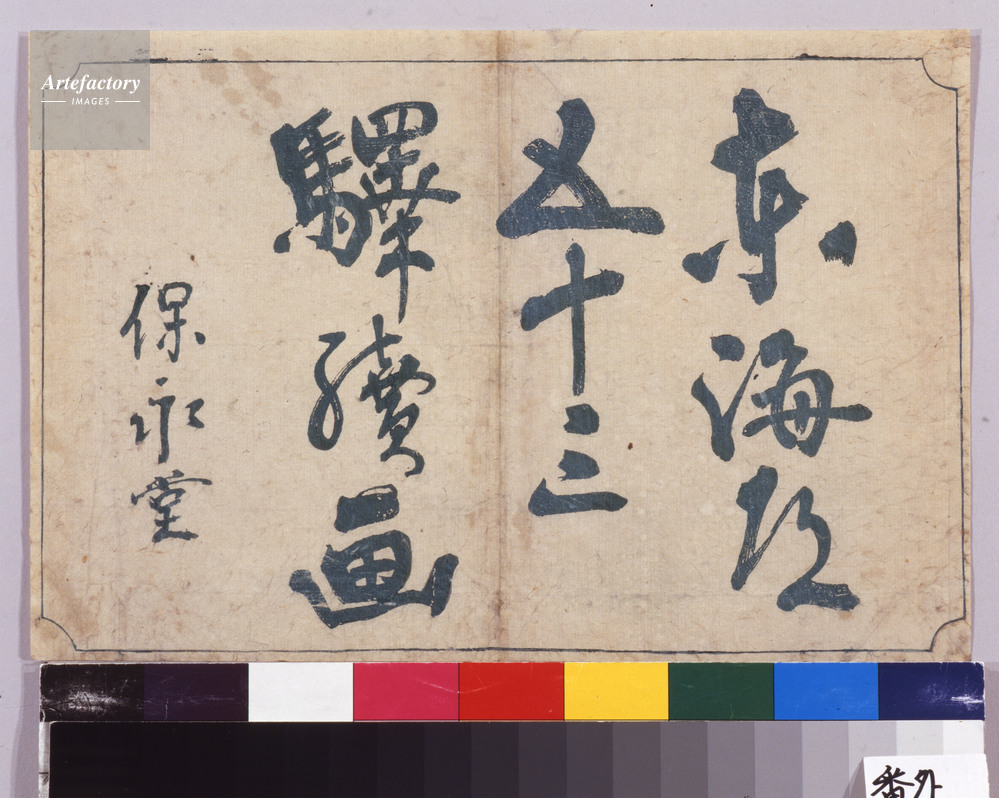 東海道
五十三
驛續画
保永堂
Artefactory
IMAGES
番外